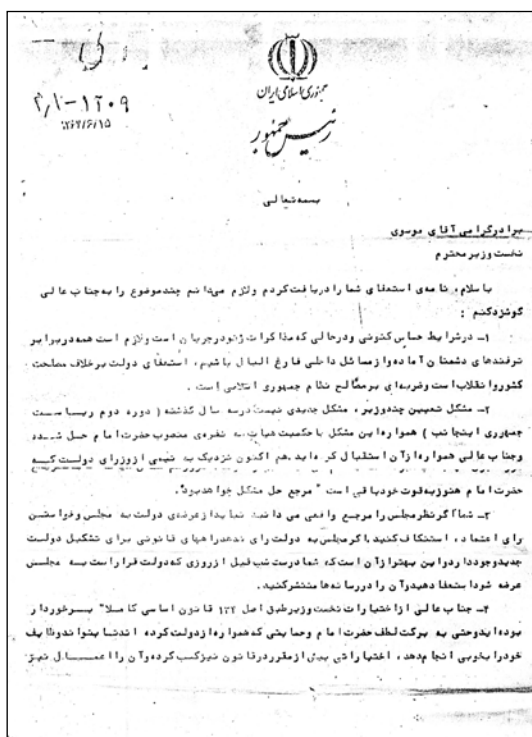 جمهوری اسلامی ایران
رئیس جمهور
۲/۱-۱۲۰۹
۱۳۶۷/۶/۱۵
بسمه تعالی
برادر گرامی آقای موسوی
نخست وزیر محترم
با سلام، نامه‌ی استعفای شما را دریافت کردم و لازم می‌دانم چند موضوع را به جنابعالی
گوشزد کنم :
۱- در شرایط حساس کنونی و در حالی که مذاکرات ژنو در جریان است و لازم است همه در برابر
ترفندهای دشمنان آماده و از مسائل داخلی فارغ البال باشیم، استعفای دولت برخلاف مصلحت
کشور و انقلاب است و ضربه‌ای بر مصالح نظام جمهوری اسلامی است .
۲- مشکل تعیین چند وزیر، مشکل جدیدی نیست در سه سال گذشته ( دوره دوم ریاست
جمهوری اینجانب ) همواره این مشکل با حکمیت هیات سه نفره‌ی منصوب حضرت امام حل شده
و جنابعالی همواره از آن استقبال کرده‌اید. هم اکنون نزدیک به نیمی از وزرای دولت که
حضرت امام هنوز به قوت خود باقی است " مرجع حل مشکل خواهد بود".
۳- شما اگر نظر مجلس را مرجع واقعی می‌دانید نباید از عرضه‌ی دولت به مجلس و خواستن
رای اعتماد، استنکاف کنید. اگر مجلس به دولت رای ندهد راههای قانونی برای تشکیل دولت
جدید وجود دارد و این بهتر از آن است که شما درست شب قبل از روزی که دولت قرار است به مجلس
عرضه شود استعفا دهید و آن را در رسانه‌ها منتشر کنید.
۴- جنابعالی از اختیارات نخست وزیر طبق اصل ۱۳۴ قانون اساسی کاملا" برخوردار
بوده‌اید و حتی به برکت لطف حضرت امام و حمایتی که همواره از دولت کرده‌اند تا بتواند وظایف
خود را بخوبی انجام دهد، اختیاراتی بیش از مقرر در قانون نیز کسب کرده و آن را اعمال نیز